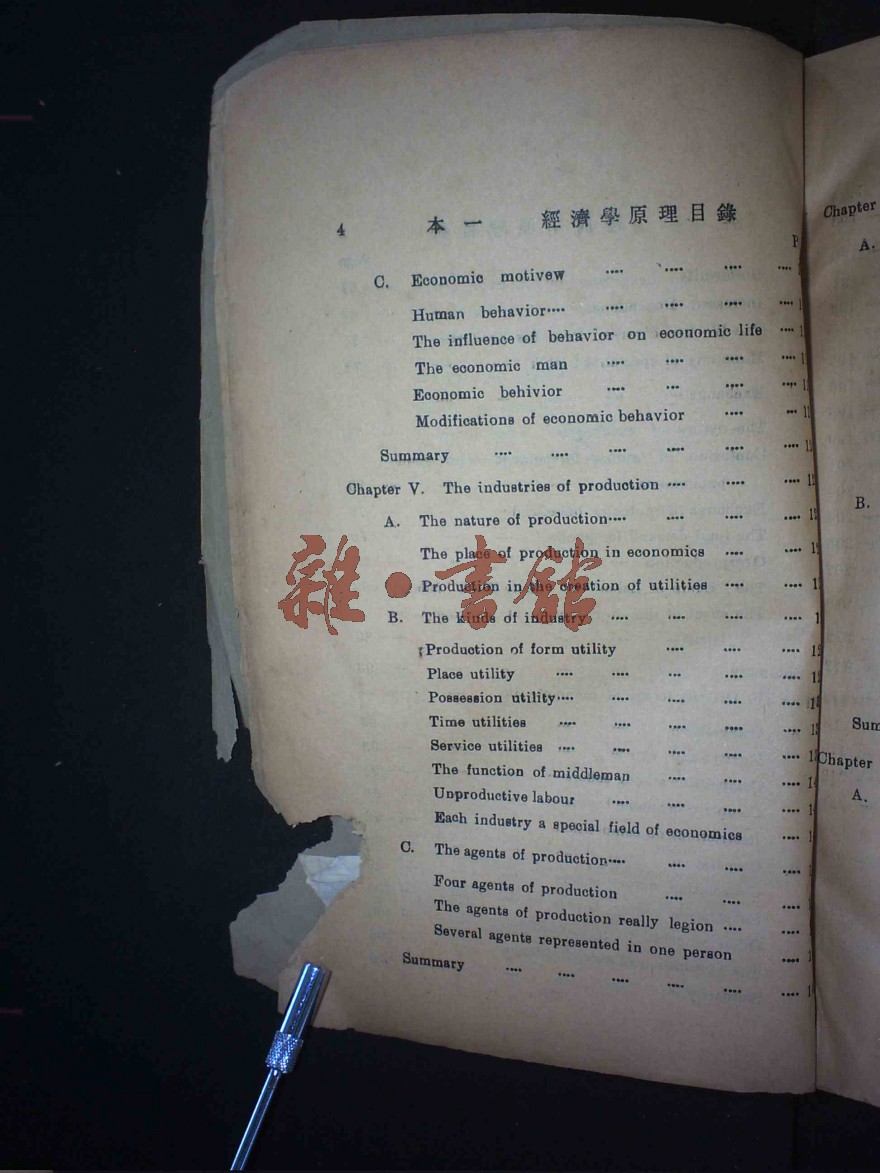 4 本一 經濟學原理目錄
P
C. Economic motivew .... .... .... ....
Human behavior.... .... .... .... .... 1
The influence of behavior on economic life .... 1
The economic man .... .... .... .... 1
Economic behivior .... ... .... .... 1
Modifications of economic behavior .... ... 1
Summary .... .... .... .... .... .... 1
Chapter V. The industries of production .... .... .... 1
A. The nature of production.... .... .... .... 1
The place of production in economics .... .... 1
Production in the creation of utilities .... .... 1
B. The kinds of industry .... .... .... 1
Production of form utility .... .... .... 1
Place utility .... .... ... .... .... 1
Possession utility.... .... .... .... .... 1
Time utilities .... .... .... .... .... 1
Service utilities .... .... .... .... .... 1
The function of middleman .... .... .... 1
Unproductive labour .... .... .... .... 1
Each industry a special field of economics .... 1
C. The agents of production.... .... .... .... 1
Four agents of production .... .... .... 1
The agents of production really legion .... .... 1
Several agents represented in one person .... 1
Summary .... .... .... .... .... .... 1
Chapter
A.
B.
Sum
Chapter
A.
雜·書館